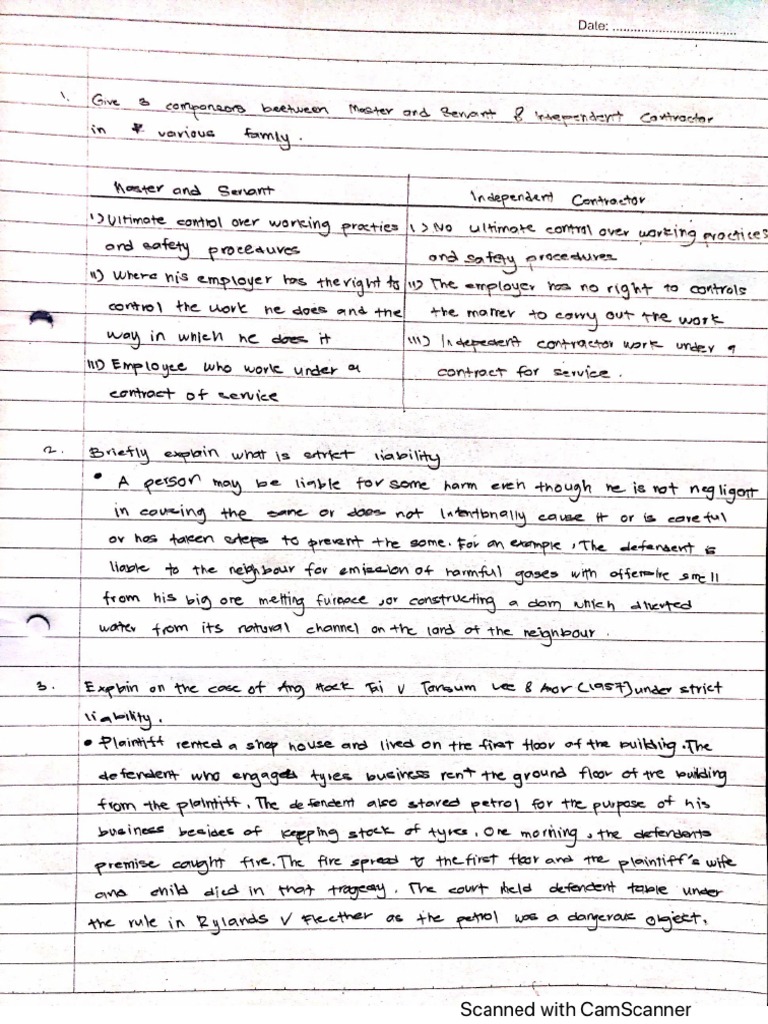 Date: ..................................
1. Give 3 comparisons beetween Master and Servant & Independent Contractor
in various family.
Master and Servant
Independent Contractor
i) Ultimate control over working practies
and safety procedures
ii) Where his employer has the right to
control the work he does and the
way in which he does it
iii) Employee who work under a
contract of service
i) No ultimate control over working practices
and safety procedures
ii) The employer has no right to controls
the manner to carry out the work
iii) Indepedent contractor work under a
contract for service.
2. Briefly explain what is strict liability
• A person may be liable for some harm even though he is not negligent
in causing the same or does not intentionally cause it or is careful
or has taken steps to prevent the some. For an example, The defendent is
liable to the neighbour for emission of harmful gases with offensive smell
from his big ore melting furnace, or constructing a dam which diverted
water from its natural channel on the land of the neighbour.
3. Explain on the case of Ang Hock Tai v Tansum Lee & Anor (1957) under strict
liability.
• Plaintiff rented a shop house and lived on the first floor of the building. The
defendent who engages tyres business rent the ground floor of the building
from the plaintiff. The defendent also stared petrol for the purpose of his
business besides of kepping stock of tyres. One morning, the defendents
premise caught fire. The fire spread to the first floor and the plaintiff's wife
and child died in that tragedy. The court held defendent liable under
the rule in Rylands V Flecther as the petrol was a dangerous object.
Scanned with CamScanner